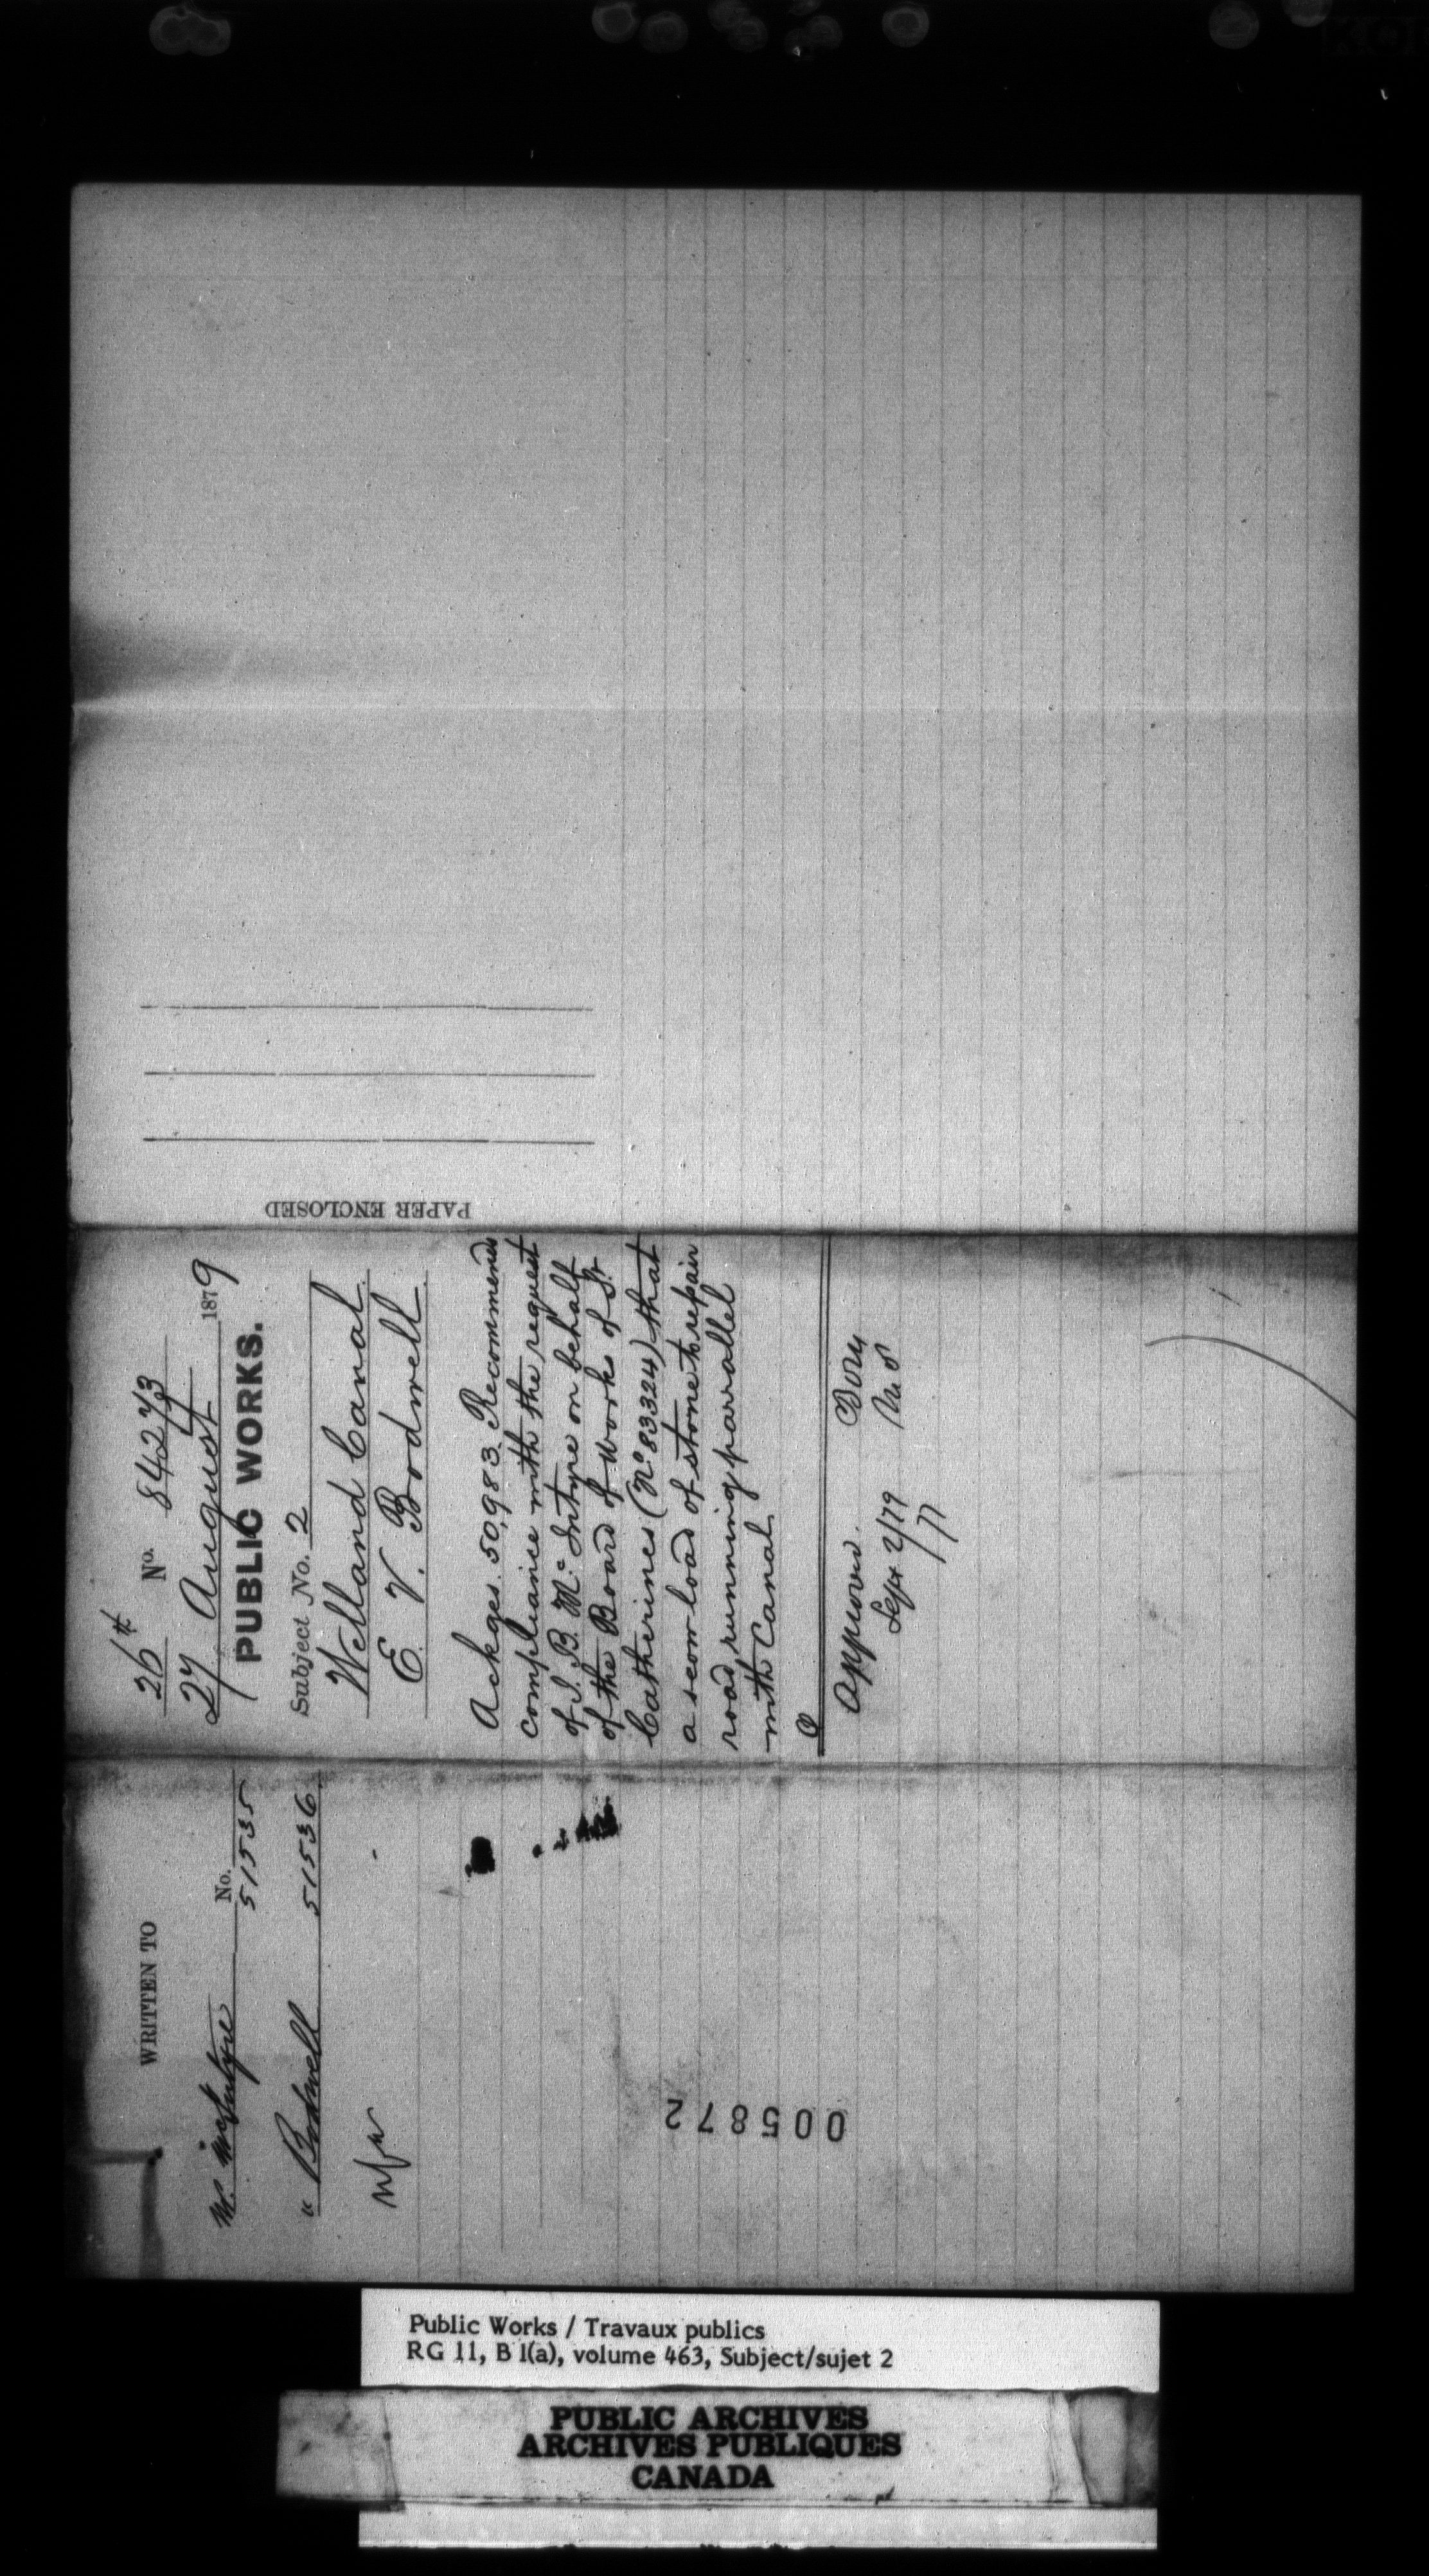 PAPER ENCLOSED
26th No. 84273
27 August 1879
PUBLIC WORKS.
Subject No. 2
Welland Canal
E. V. Bodwell
Ackges. 50,983. Recommends
compliance with the request
of J. B. McIntyre on behalf
of the Board of Works of St
Catherines (No 83324) that
a scow load of stone to repair
road running parrallel
with Canal
Approved.
Sept 2/79
WRITTEN TO
No.
Mr. McIntyre 51535
" Bodwell 51536
005872
Public Works / Travaux publics
RG 11, B 1(a), volume 463, Subject/sujet 2
PUBLIC ARCHIVES
ARCHIVES PUBLIQUES
CANADA